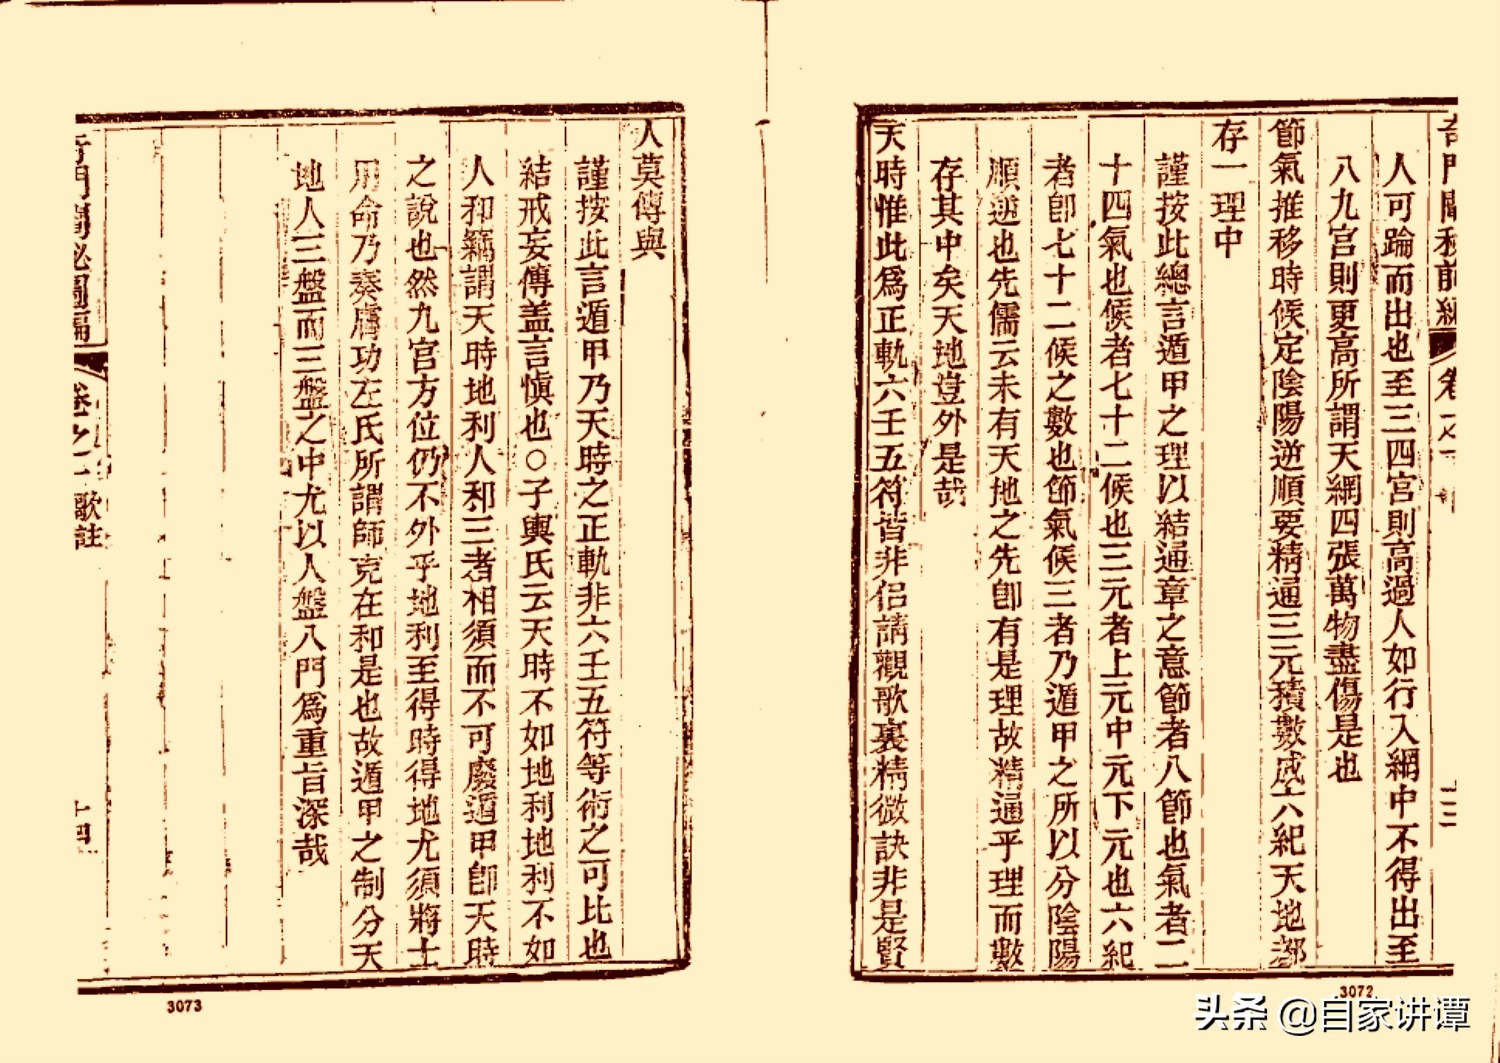 人可踰而出也至三四宮則高過人如行入網中不得出至
八九宮則更高所謂天網四張萬物盡傷是也
節氣推移時候定陰陽逆順要精通三元積數成六紀天地都
存一理中
謹按此總言遁甲之理以結通章之意節者八節也氣者二
十四氣也候者七十二候也三元者上元中元下元也六紀
者卽七十二候之數也節氣候三者乃遁甲之所以分陰陽
順逆也先儒云未有天地之先卽有是理故精通乎理而數
存其中矣天地豈外是哉
天時惟此爲正軌六壬五符皆非侣請觀歌裏精微訣非是賢
3072
人莫傳與
謹按此言遁甲乃天時之正軌非六壬五符等術之可比也
結戒妄傳盖言愼也○子輿氏云天時不如地利地利不如
人和竊謂天時地利人和三者相須而不可廢遁甲卽天時
之說也然九宮方位仍不外乎地利至得時得地尤須將士
用命乃奏膚功左氏所謂師克在和是也故遁甲之制分天
地人三盤而三盤之中尤以人盤八門爲重旨深哉
卷之一 歌註
十四
3073
头条 @自家讲谭